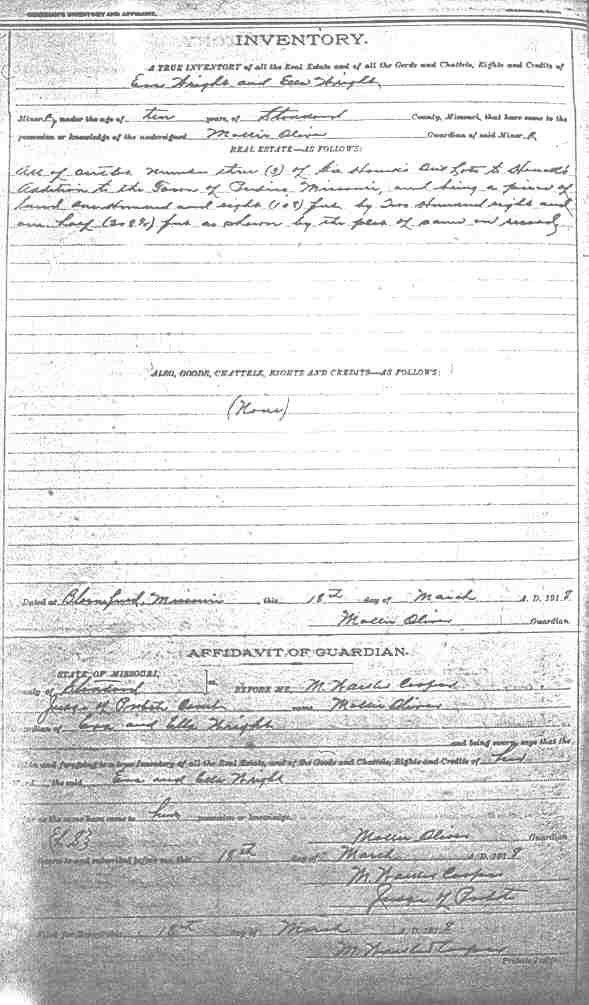 GUARDIAN'S INVENTORY AND AFFIDAVIT.
INVENTORY.
A TRUE INVENTORY of all the Real Estate and of all the Goods and Chattels, Rights and Credits of
Eva Wright and Ella Wright
Minors, under the age of ten years, of Stoddard County, Missouri, that have come to the
possession or knowledge of the undersigned Mollie Oliver Guardian of said Minors
REAL ESTATE—AS FOLLOWS:
All of number three (3) of Out Lots to
Addition to the Town of Missouri, and being a piece of
land one hundred and eight (108) feet by Two Hundred eight and
one half (208½) feet as shown by the plat of same on record
ALSO, GOODS, CHATTELS, RIGHTS AND CREDITS—AS FOLLOWS:
(None)
Dated at Bloomfield, Missouri this 18th day of March A. D. 1918
Mollie Oliver Guardian.
AFFIDAVIT OF GUARDIAN.
STATE OF MISSOURI,
of Stoddard ss. BEFORE ME, M. Cooper
Judge of Probate Court came Mollie Oliver
of Eva and Ella Wright
and being sworn, says that the
and foregoing is a true Inventory of all the Real Estate, and of the Goods and Chattels, Rights and Credits of her
the said Eva and Ella Wright
as the same have come to her possession or knowledge.
Mollie Oliver Guardian
Sworn to and subscribed before me, this 18th day of March A. D. 1918
M. Cooper
Judge of Probate
Filed 18th day of March A. D. 1918
M. Cooper
Probate Judge